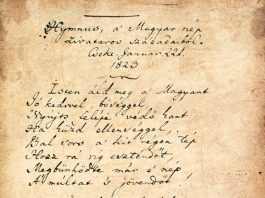 Hymnus, a' Magyar nép
zivataros századaiból.
Cseke, Januar. 22d.
1823
Isten áldd meg a' Magyart
Jó kedvvel, bőséggel,
Nyújts feléje védő kart
Ha küzd ellenséggel,
Bal sors a' kit régen tép
Hozz rá víg esztendőt,
Megbünhödte már e' nép
A' múltat 's jövendőt!